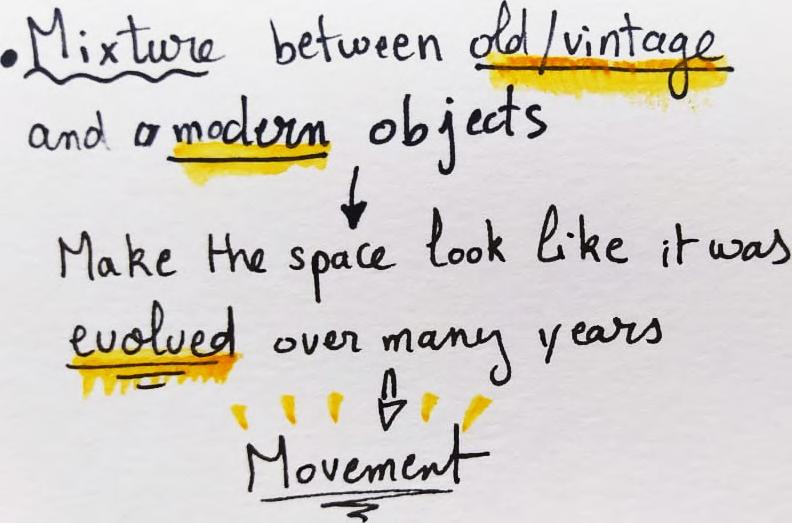 • Mixture between old/vintage
and a modern objects
↓
Make the space look like it was
evolved over many years
⇓
Movement